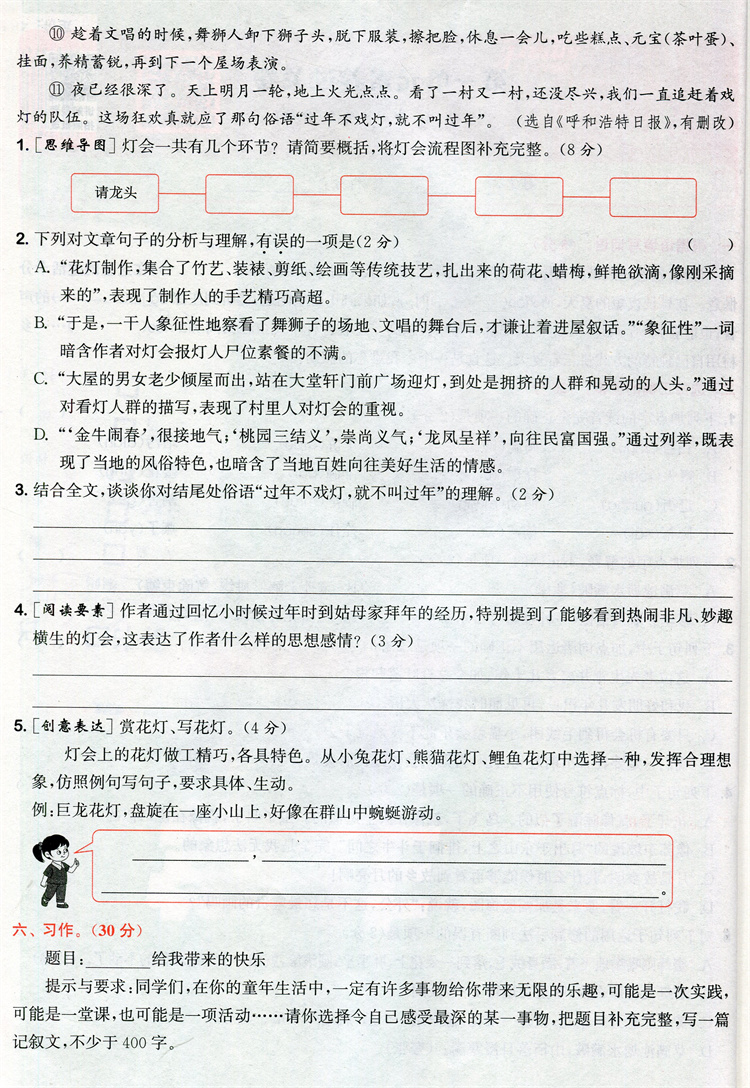 ⑩ 趁着文唱的时候,舞狮人卸下狮子头,脱下服装,擦把脸,休息一会儿,吃些糕点、元宝(茶叶蛋)、
挂面,养精蓄锐,再到下一个屋场表演。
⑪ 夜已经很深了。天上明月一轮,地上火光点点。看了一村又一村,还没尽兴,我们一直追赶着戏
灯的队伍。这场狂欢真就应了那句俗语“过年不戏灯,就不叫过年”。 (选自《呼和浩特日报》,有删改)
1. [思维导图] 灯会一共有几个环节? 请简要概括,将灯会流程图补充完整。(8 分)
请龙头
2. 下列对文章句子的分析与理解,有误的一项是(2 分) ( )
A. “花灯制作,集合了竹艺、装裱、剪纸、绘画等传统技艺,扎出来的荷花、蜡梅,鲜艳欲滴,像刚采摘
来的”,表现了制作人的手艺精巧高超。
B. “于是,一干人象征性地察看了舞狮子的场地、文唱的舞台后,才谦让着进屋叙话。”“象征性”一词
暗含作者对灯会报灯人尸位素餐的不满。
C. “大屋的男女老少倾屋而出,站在大堂轩门前广场迎灯,到处是拥挤的人群和晃动的人头。”通过
对看灯人群的描写,表现了村里人对灯会的重视。
D. “‘金牛闹春’,很接地气;‘桃园三结义’,崇尚义气;‘龙凤呈祥’,向往民富国强。”通过列举,既表
现了当地的风俗特色,也暗含了当地百姓向往美好生活的情感。
3. 结合全文,谈谈你对结尾处俗语“过年不戏灯,就不叫过年”的理解。(2 分)
4. [阅读要素] 作者通过回忆小时候过年时到姑母家拜年的经历,特别提到了能够看到热闹非凡、妙趣
横生的灯会,这表达了作者什么样的思想感情? (3 分)
5. [创意表达] 赏花灯、写花灯。(4 分)
灯会上的花灯做工精巧,各具特色。从小兔花灯、熊猫花灯、鲤鱼花灯中选择一种,发挥合理想
象,仿照例句写句子,要求具体、生动。
例:巨龙花灯,盘旋在一座小山上,好像在群山中蜿蜒游动。
________,________
________。
六、习作。(30 分)
题目:________给我带来的快乐
提示与要求:同学们,在你的童年生活中,一定有许多事物给你带来无限的乐趣,可能是一次实践,
可能是一堂课,也可能是一项活动……请你选择令自己感受最深的某一事物,把题目补充完整,写一篇
记叙文,不少于 400 字。